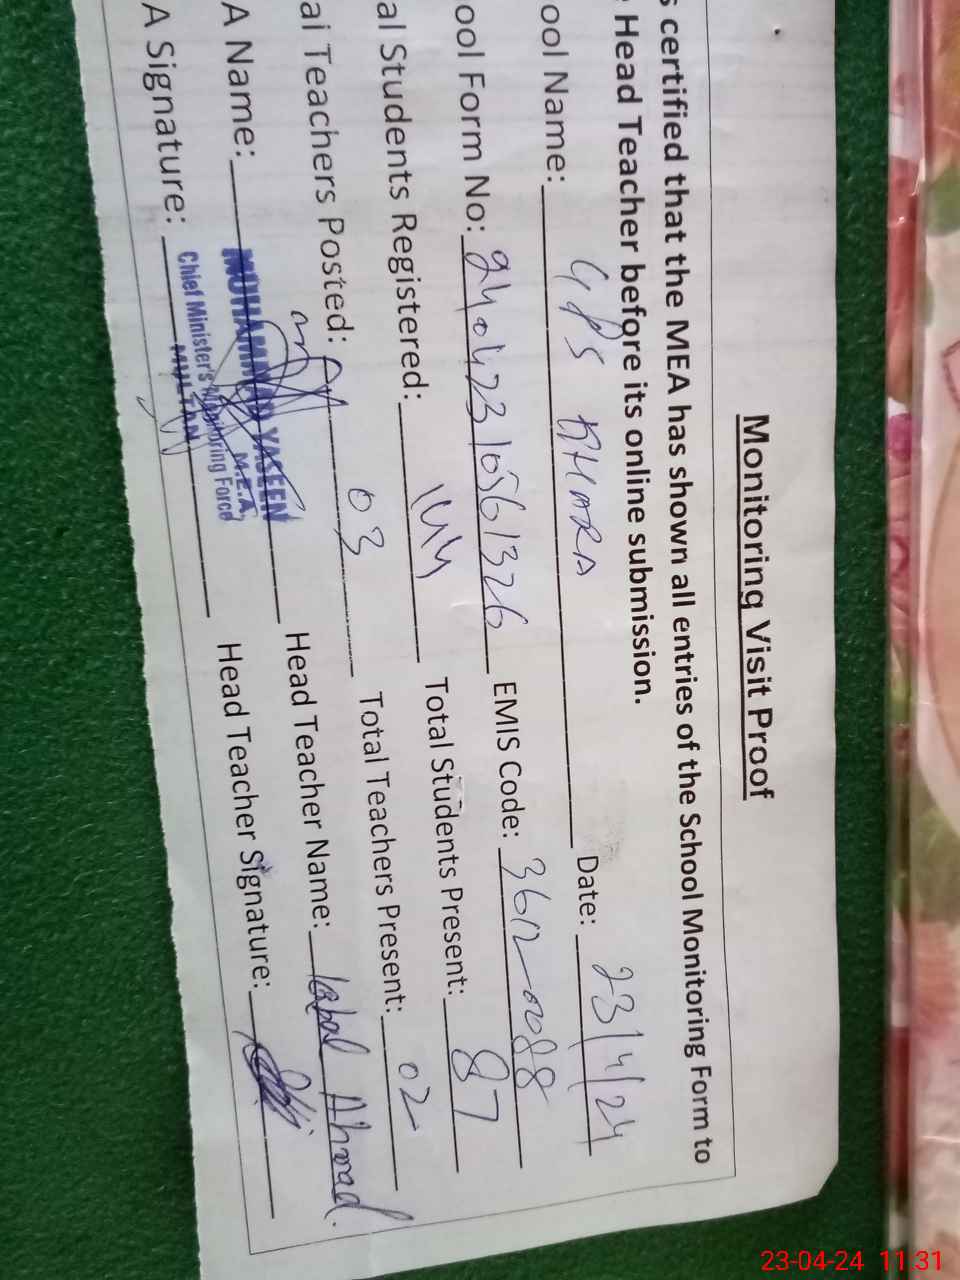 Monitoring Visit Proof
s certified that the MEA has shown all entries of the School Monitoring Form to
Head Teacher before its online submission.
ool Name: GPS KHARA Date: 23/4/24
ool Form No: 24042310561326 EMIS Code: 36120088
al Students Registered: 144 Total Students Present: 87
al Teachers Posted: 03 Total Teachers Present: 02
A Name: MUHAMMAD YASEEN Head Teacher Name: Iqbal Ahmad.
M.E.A.
A Signature: Chief Minister's Monitoring Force Head Teacher Signature:
MULTAN
23-04-24 11:31